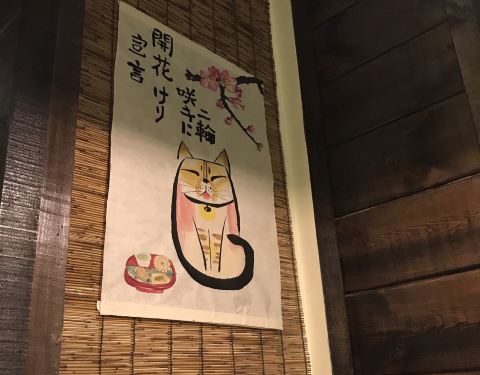 開花
宣言
二輪
咲きに
けり